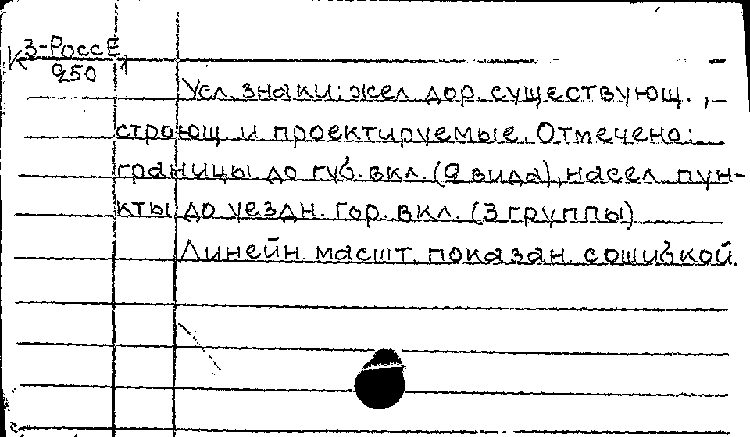 К 3-РоссЕ
250 1
Усл. знаки: жел дор. существующ.,
строющ и проектируемые. Отмечено:
границы до губ. вкл. (2 вида), насел. пун-
кты до уездн. гор. вкл. (3 группы)
Линейн масшт. показан с ошибкой.